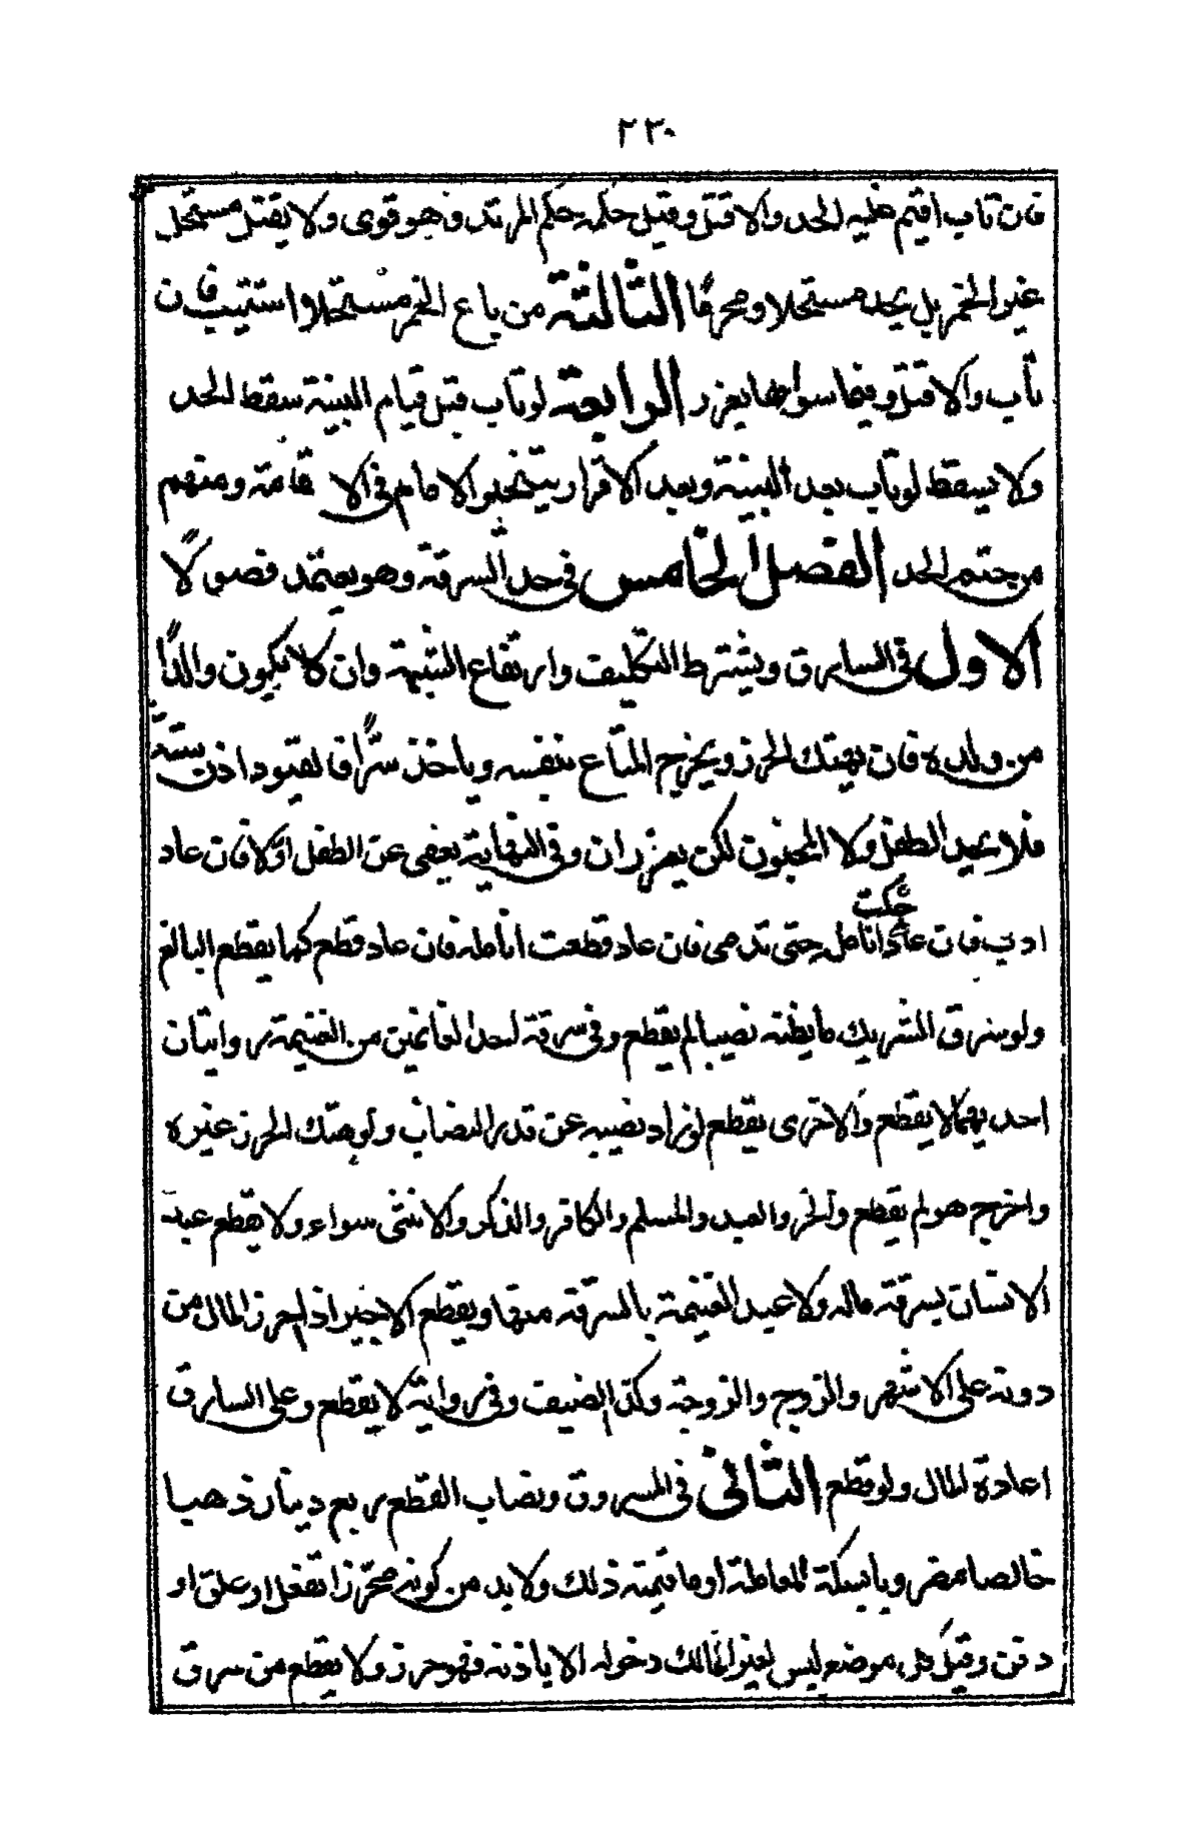 ٢٣٠
فان تاب اقيم عليه الحد والا قتل وقيل حكمه حكم المرتد وهو قوى ولا يقتل مستحل
غير الخمر بل يحد مستحلا ومحرما الثالثة من باع الخمر مستحلا استتيب فان
تاب والا قتل وفيما سواها يعزر الرابعة لو تاب قبل قيام البينة سقط الحد
ولا يسقط لو تاب بعد البينة وبعد الاقرار يتخير الامام فى الاقامة ومنهم
من حتم الحد الفصل الخامس فى حد السرقة وهو يعتمد فصولا
الاول فى السارق ويشترط التكليف وارتفاع الشبهة وان لا يكون والدا
من ولده وان يهتك الحرز ويخرج المتاع بنفسه وياخذ سرا فالقيود اذن ستة
فلا يحد الطفل ولا المجنون لكن يعزران وفى النهاية يعفى عن الطفل اولا فان عاد
ادب فان عاد حكت انامله حتى تدمى فان عاد قطعت انامله فان عاد قطع كما يقطع البالغ
ولو سرق الشريك ما يظنه نصيبا لم يقطع وفى سرقة احد الغانمين من الغنيمة روايتان
احديهما لا يقطع والاخرى يقطع لو زاد نصيبه عن قدر النصاب ولو هتك الحرز غيره
واخرج هو لم يقطع والحر والعبد والمسلم والكافر والذكر والانثى سواء ولا يقطع عبد
الانسان بسرقة ماله ولا عبد الغنيمة بالسرقة منها ويقطع الاجير اذا احرز المال من
دونه على الاشهر والزوج والزوجة وكذا الضيف وفى رواية لا يقطع وعلى السارق
اعادة المال ولو قطع الثانى فى المسروق ونصاب القطع ربع دينار ذهبا
خالصا مضروبا بسكة المعاملة او ما قيمته ذلك ولا بد من كونه محرزا بقفل او غلق او
دفن وقيل كل موضع ليس لغير المالك دخوله الا باذنه فهو حرز ولا يقطع من سرق